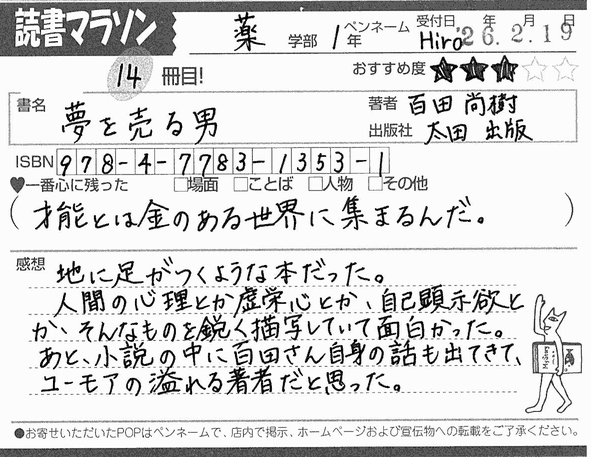 読書マラソン
薬 学部 1年 ペンネーム Hiro 受付日 '26.2.19 年 月 日
14 冊目! おすすめ度 ★★★☆☆
書名 夢を売る男 著者 百田 尚樹
出版社 太田 出版
ISBN 978-4-7783-1353-1
♥一番心に残った □場面 □ことば □人物 □その他
(才能とは金のある世界に集まるんだ。)
感想 地に足がつくような本だった。
人間の心理とか虚栄心とか、自己顕示欲と
か、そんなものを鋭く描写していて面白かった。
あと、小説の中に百田さん自身の話も出てきて、
ユーモアの溢れる著者だと思った。
●お寄せいただいたPOPはペンネームで、店内で掲示、ホームページおよび宣伝物への転載をご了承ください。